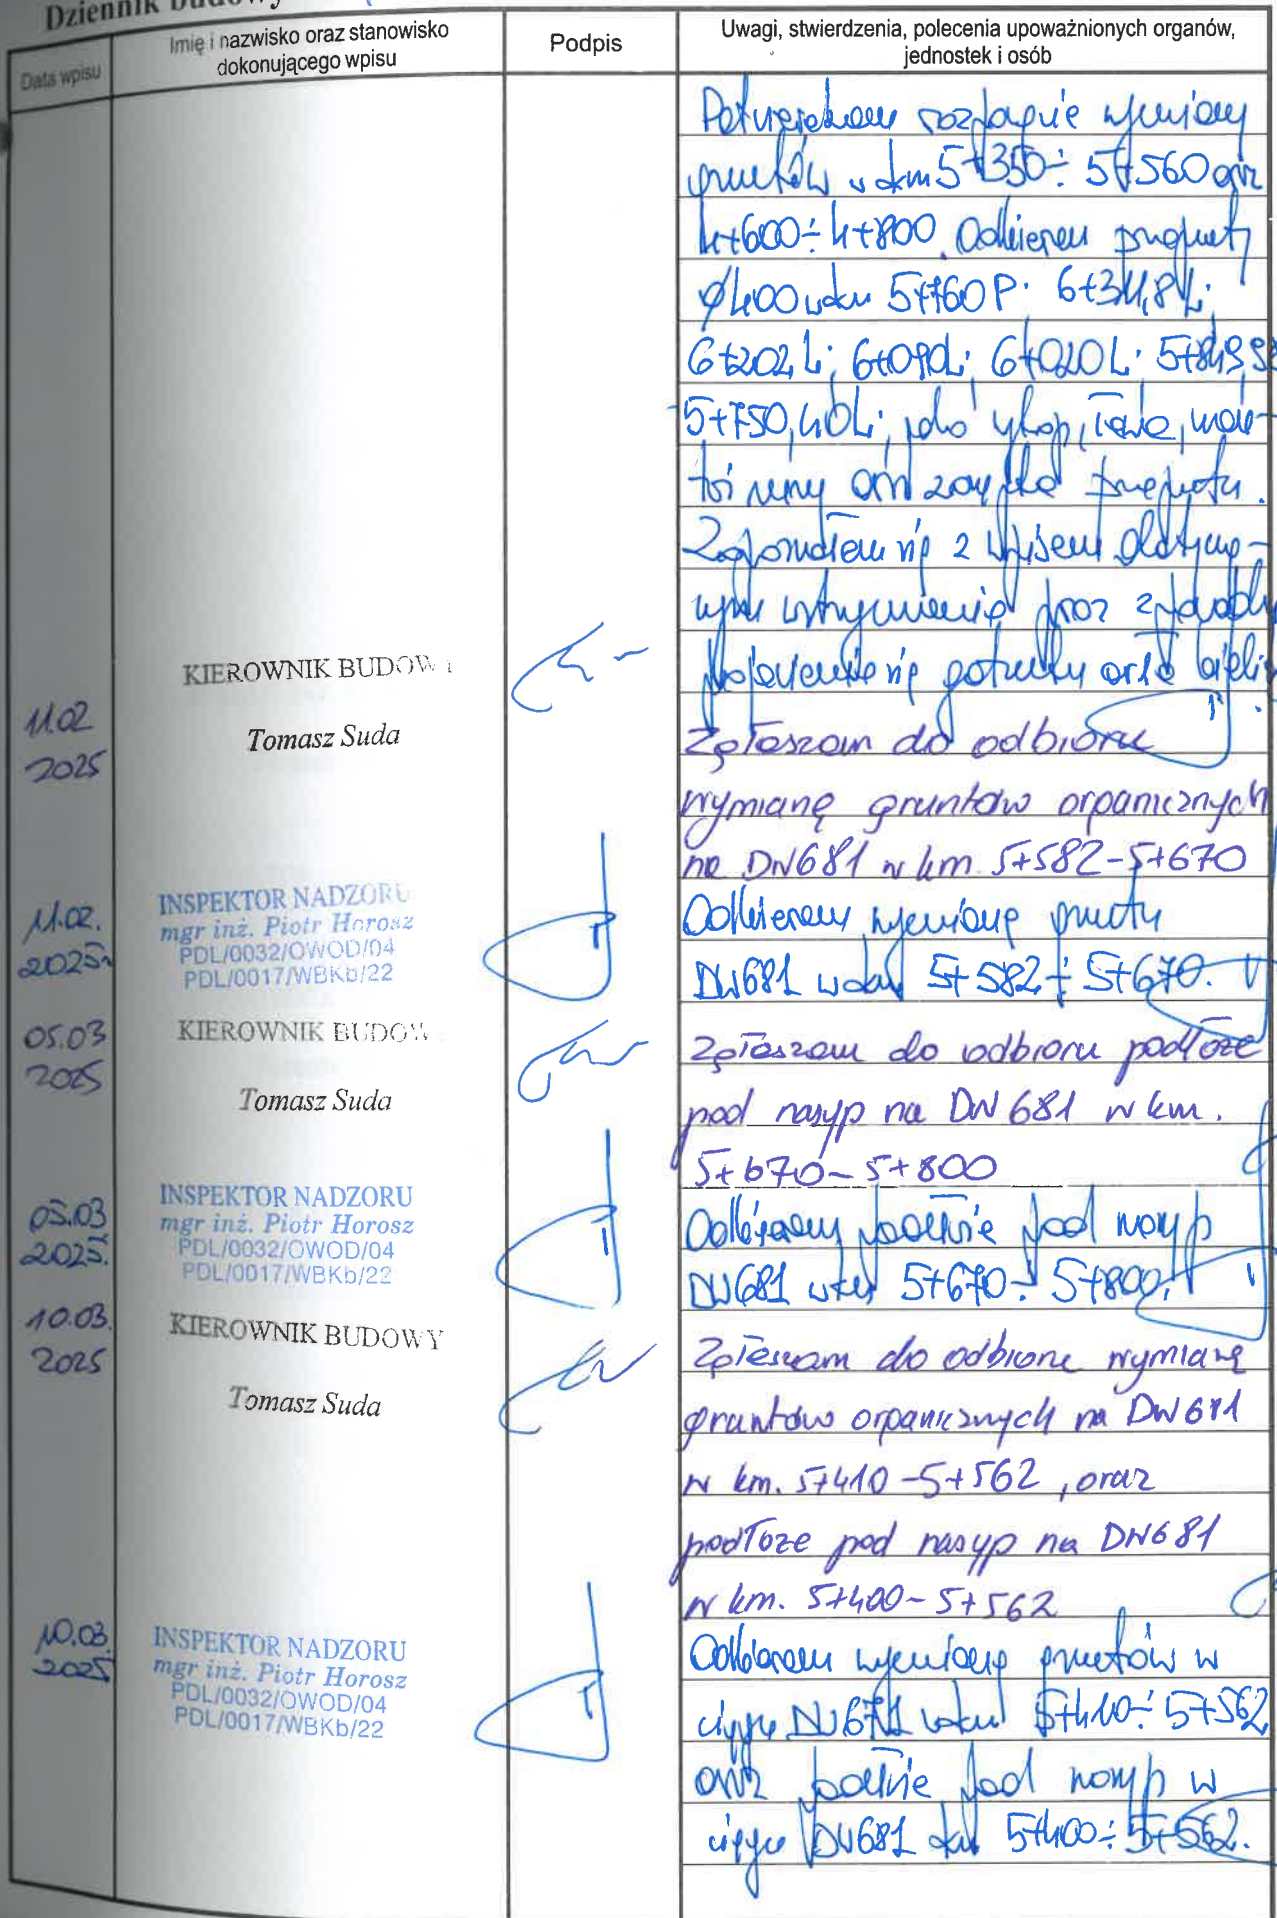 Dziennik Budowy
Data wpisu
Imię i nazwisko oraz stanowisko
dokonującego wpisu
Podpis
Uwagi, stwierdzenia, polecenia upoważnionych organów,
jednostek i osób
wymiany
gruntów w km 5+350÷5+560 oraz
4+600÷4+800. Odbieram przepusty
Ø400 w km 5+760P; 6+311,8L;
6+202L; 6+020L;
5+750,40L;
oraz zasypka przepustu.
Zapoznałem się z wpisem dotyczą-
KIEROWNIK BUDOWY
11.02
2025
Tomasz Suda
Zgłaszam do odbioru
wymianę gruntów organicznych
na DW681 w km. 5+582-5+670
11.02.
2025r
INSPEKTOR NADZORU
mgr inż. Piotr Horosz
PDL/0032/OWOD/04
PDL/0017/WBKb/22
Odbieram wymianę gruntu
DW681 w km 5+582÷5+670.
05.03
2025
KIEROWNIK BUDOW
Tomasz Suda
Zgłaszam do odbioru podłoże
pod nasyp na DW 681 w km.
5+670-5+800
05.03
2025.
INSPEKTOR NADZORU
mgr inż. Piotr Horosz
PDL/0032/OWOD/04
PDL/0017/WBKb/22
Odbieram podłoże pod nasyp
DW681 w km 5+670÷5+800.
10.03.
2025
KIEROWNIK BUDOWY
Tomasz Suda
Zgłaszam do odbioru wymianę
gruntów organicznych na DW681
w km. 5+410-5+562, oraz
podłoże pod nasyp na DW681
w km. 5+400-5+562
10.03.
2025
INSPEKTOR NADZORU
mgr inż. Piotr Horosz
PDL/0032/OWOD/04
PDL/0017/WBKb/22
Odbieram wymianę gruntów w
ciągu DW681 w km 5+410÷5+562
oraz podłoże pod nasyp w
ciągu DW681 km 5+400÷5+562.